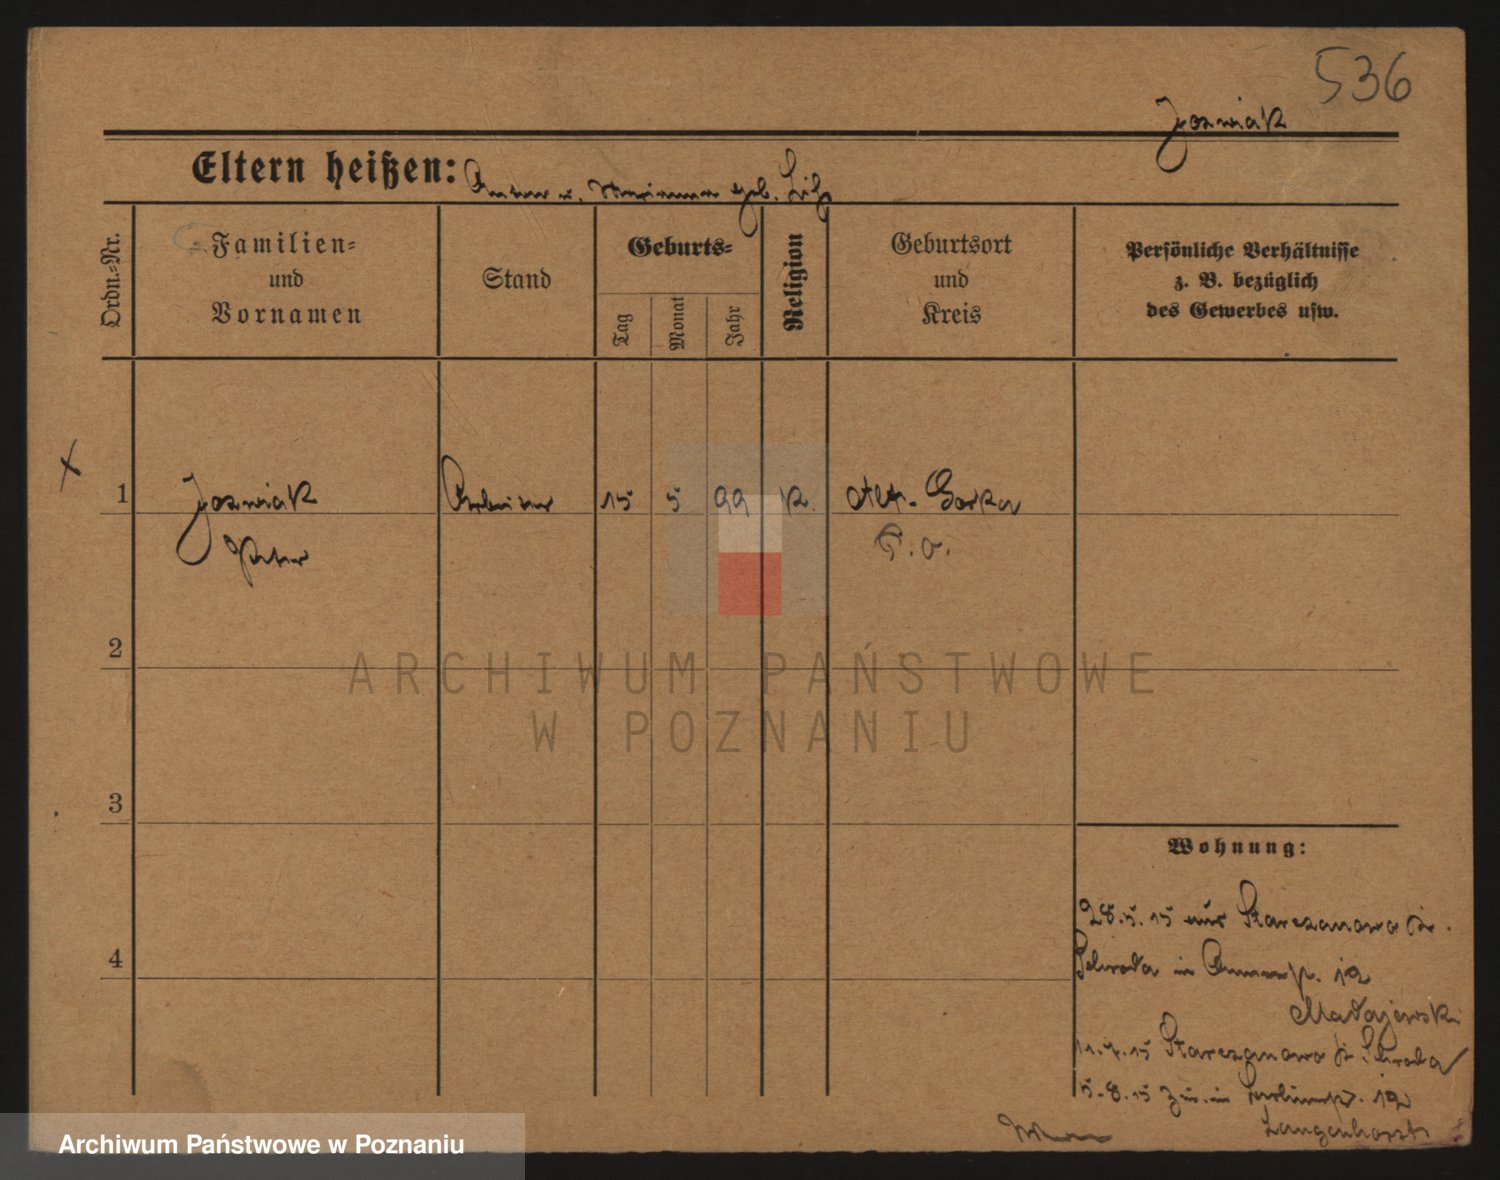 536
Jozwiak
Eltern heißen: Anton u. Marianna geb.
Ordn.-Nr.
Familien-
und
Vornamen
Stand
Geburts-
Tag
Monat
Jahr
Religion
Geburtsort
und
Kreis
Persönliche Verhältnisse
z. B. bezüglich
des Gewerbes usw.
1
Jozwiak
Arbeiter
15
5
99
K.
Alt-Gorka
Peter
P. O.
2
3
4
Wohnung:
28.5.15 aus Starczanowo Kr.
Schroda in 12
Madajewski
11.7.15 Starczanowo Kr. Schroda
5.8.15 zur. in 12
Langenhorst
ARCHIWUM PAŃSTWOWE
W POZNANIU
Archiwum Państwowe w Poznaniu